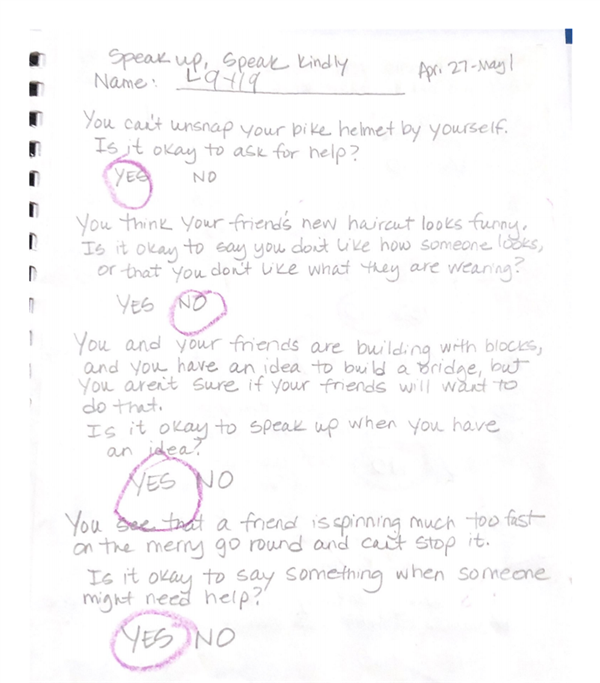 Speak up, Speak Kindly
Apr. 27-May 1
Name:
You can't unsnap your bike helmet by yourself.
Is it okay to ask for help?
YES NO
You think your friend's new haircut looks funny.
Is it okay to say you don't like how someone looks,
or that you don't like what they are wearing?
YES NO
You and your friends are building with blocks,
and you have an idea to build a bridge, but
you aren't sure if your friends will want to
do that.
Is it okay to speak up when you have
an idea?
YES NO
You see that a friend is spinning much too fast
on the merry go round and can't stop it.
Is it okay to say something when someone
might need help?
YES NO